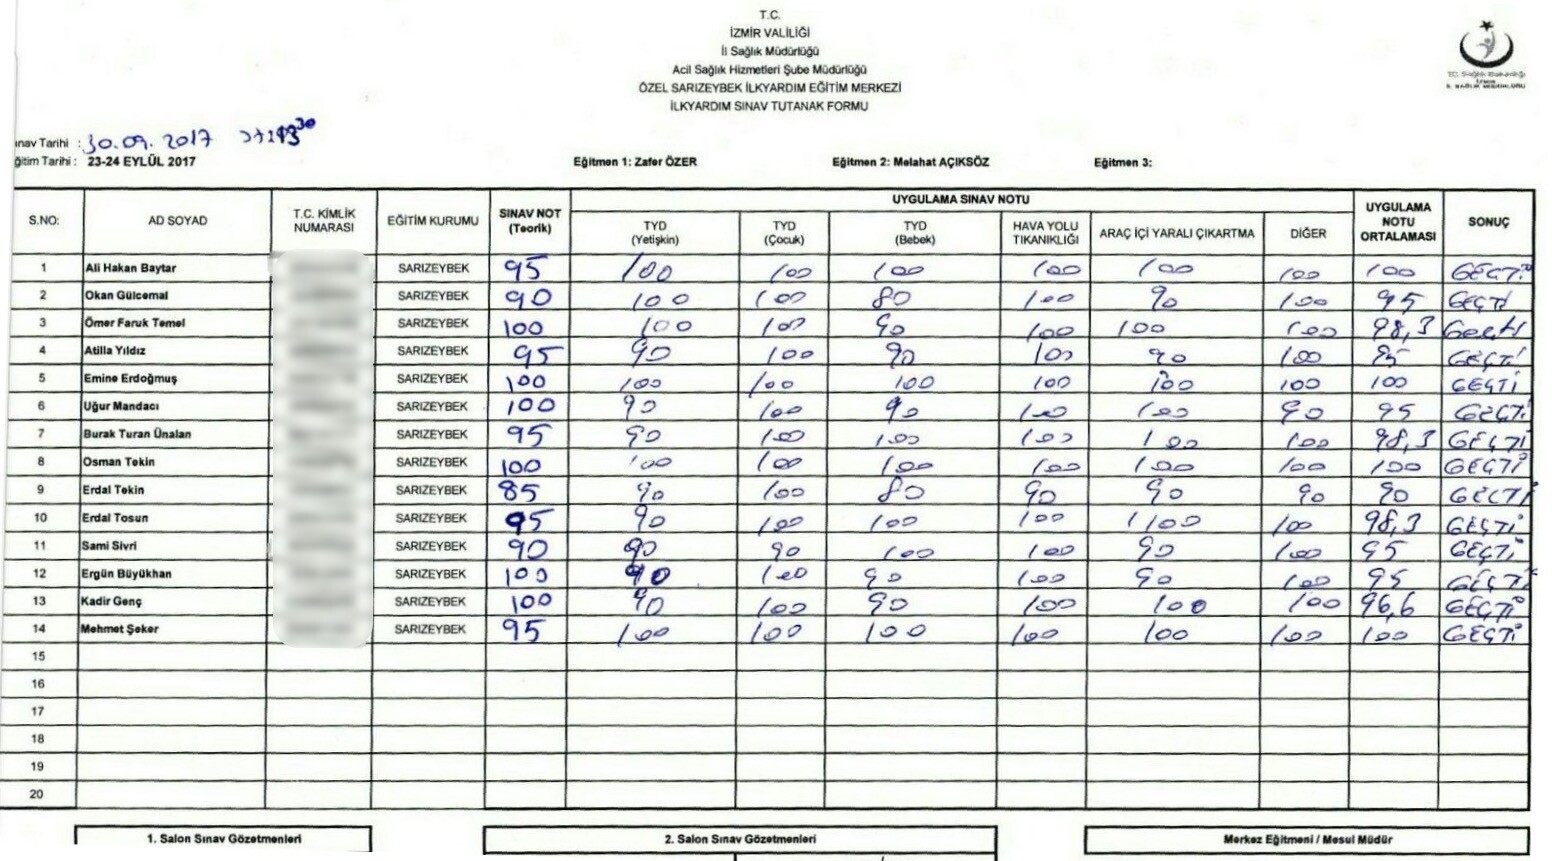 T.C.
İZMİR VALİLİĞİ
İl Sağlık Müdürlüğü
Acil Sağlık Hizmetleri Şube Müdürlüğü
ÖZEL SARIZEYBEK İLKYARDIM EĞİTİM MERKEZİ
İLKYARDIM SINAV TUTANAK FORMU
T.C. Sağlık Bakanlığı
İZMİR
İL SAĞLIK MÜDÜRLÜĞÜ
ınav Tarihi : 30.09.2017
ğitim Tarihi : 23-24 EYLÜL 2017 Eğitmen 1: Zafer ÖZER Eğitmen 2: Melahat AÇIKSÖZ Eğitmen 3:
S.NO: AD SOYAD T.C. KİMLİK NUMARASI EĞİTİM KURUMU SINAV NOT (Teorik) UYGULAMA SINAV NOTU UYGULAMA NOTU ORTALAMASI SONUÇ
TYD (Yetişkin) TYD (Çocuk) TYD (Bebek) HAVA YOLU TIKANIKLIĞI ARAÇ İÇİ YARALI ÇIKARTMA DİĞER
1 Ali Hakan Baytar SARIZEYBEK 95 100 100 100 100 100 100 100 GEÇTİ
2 Okan Gülcemal SARIZEYBEK 90 100 100 80 100 90 100 95 GEÇTİ
3 Ömer Faruk Temel SARIZEYBEK 100 100 100 90 100 100 100 98,3 Geçti
4 Atilla Yıldız SARIZEYBEK 95 90 100 90 100 90 100 95 GEÇTİ
5 Emine Erdoğmuş SARIZEYBEK 100 100 100 100 100 100 100 100 GEÇTİ
6 Uğur Mandacı SARIZEYBEK 100 90 100 90 100 100 90 95 GEÇTİ
7 Burak Turan Ünalan SARIZEYBEK 95 90 100 100 100 100 100 98,3 GEÇTİ
8 Osman Tekin SARIZEYBEK 100 100 100 100 100 100 100 100 GEÇTİ
9 Erdal Tekin SARIZEYBEK 85 90 100 80 90 90 90 90 GECTİ
10 Erdal Tosun SARIZEYBEK 95 90 100 100 100 100 100 98,3 GEÇTİ
11 Sami Sivri SARIZEYBEK 90 90 90 100 100 90 100 95 GEÇTİ
12 Ergün Büyükhan SARIZEYBEK 100 90 100 90 100 90 100 95 GEÇTİ
13 Kadir Genç SARIZEYBEK 100 90 100 90 100 100 100 96,6 GEÇTİ
14 Mehmet Şeker SARIZEYBEK 95 100 100 100 100 100 100 100 GEÇTİ
15
16
17
18
19
20
1. Salon Sınav Gözetmenleri 2. Salon Sınav Gözetmenleri Merkez Eğitmeni / Mesul Müdür